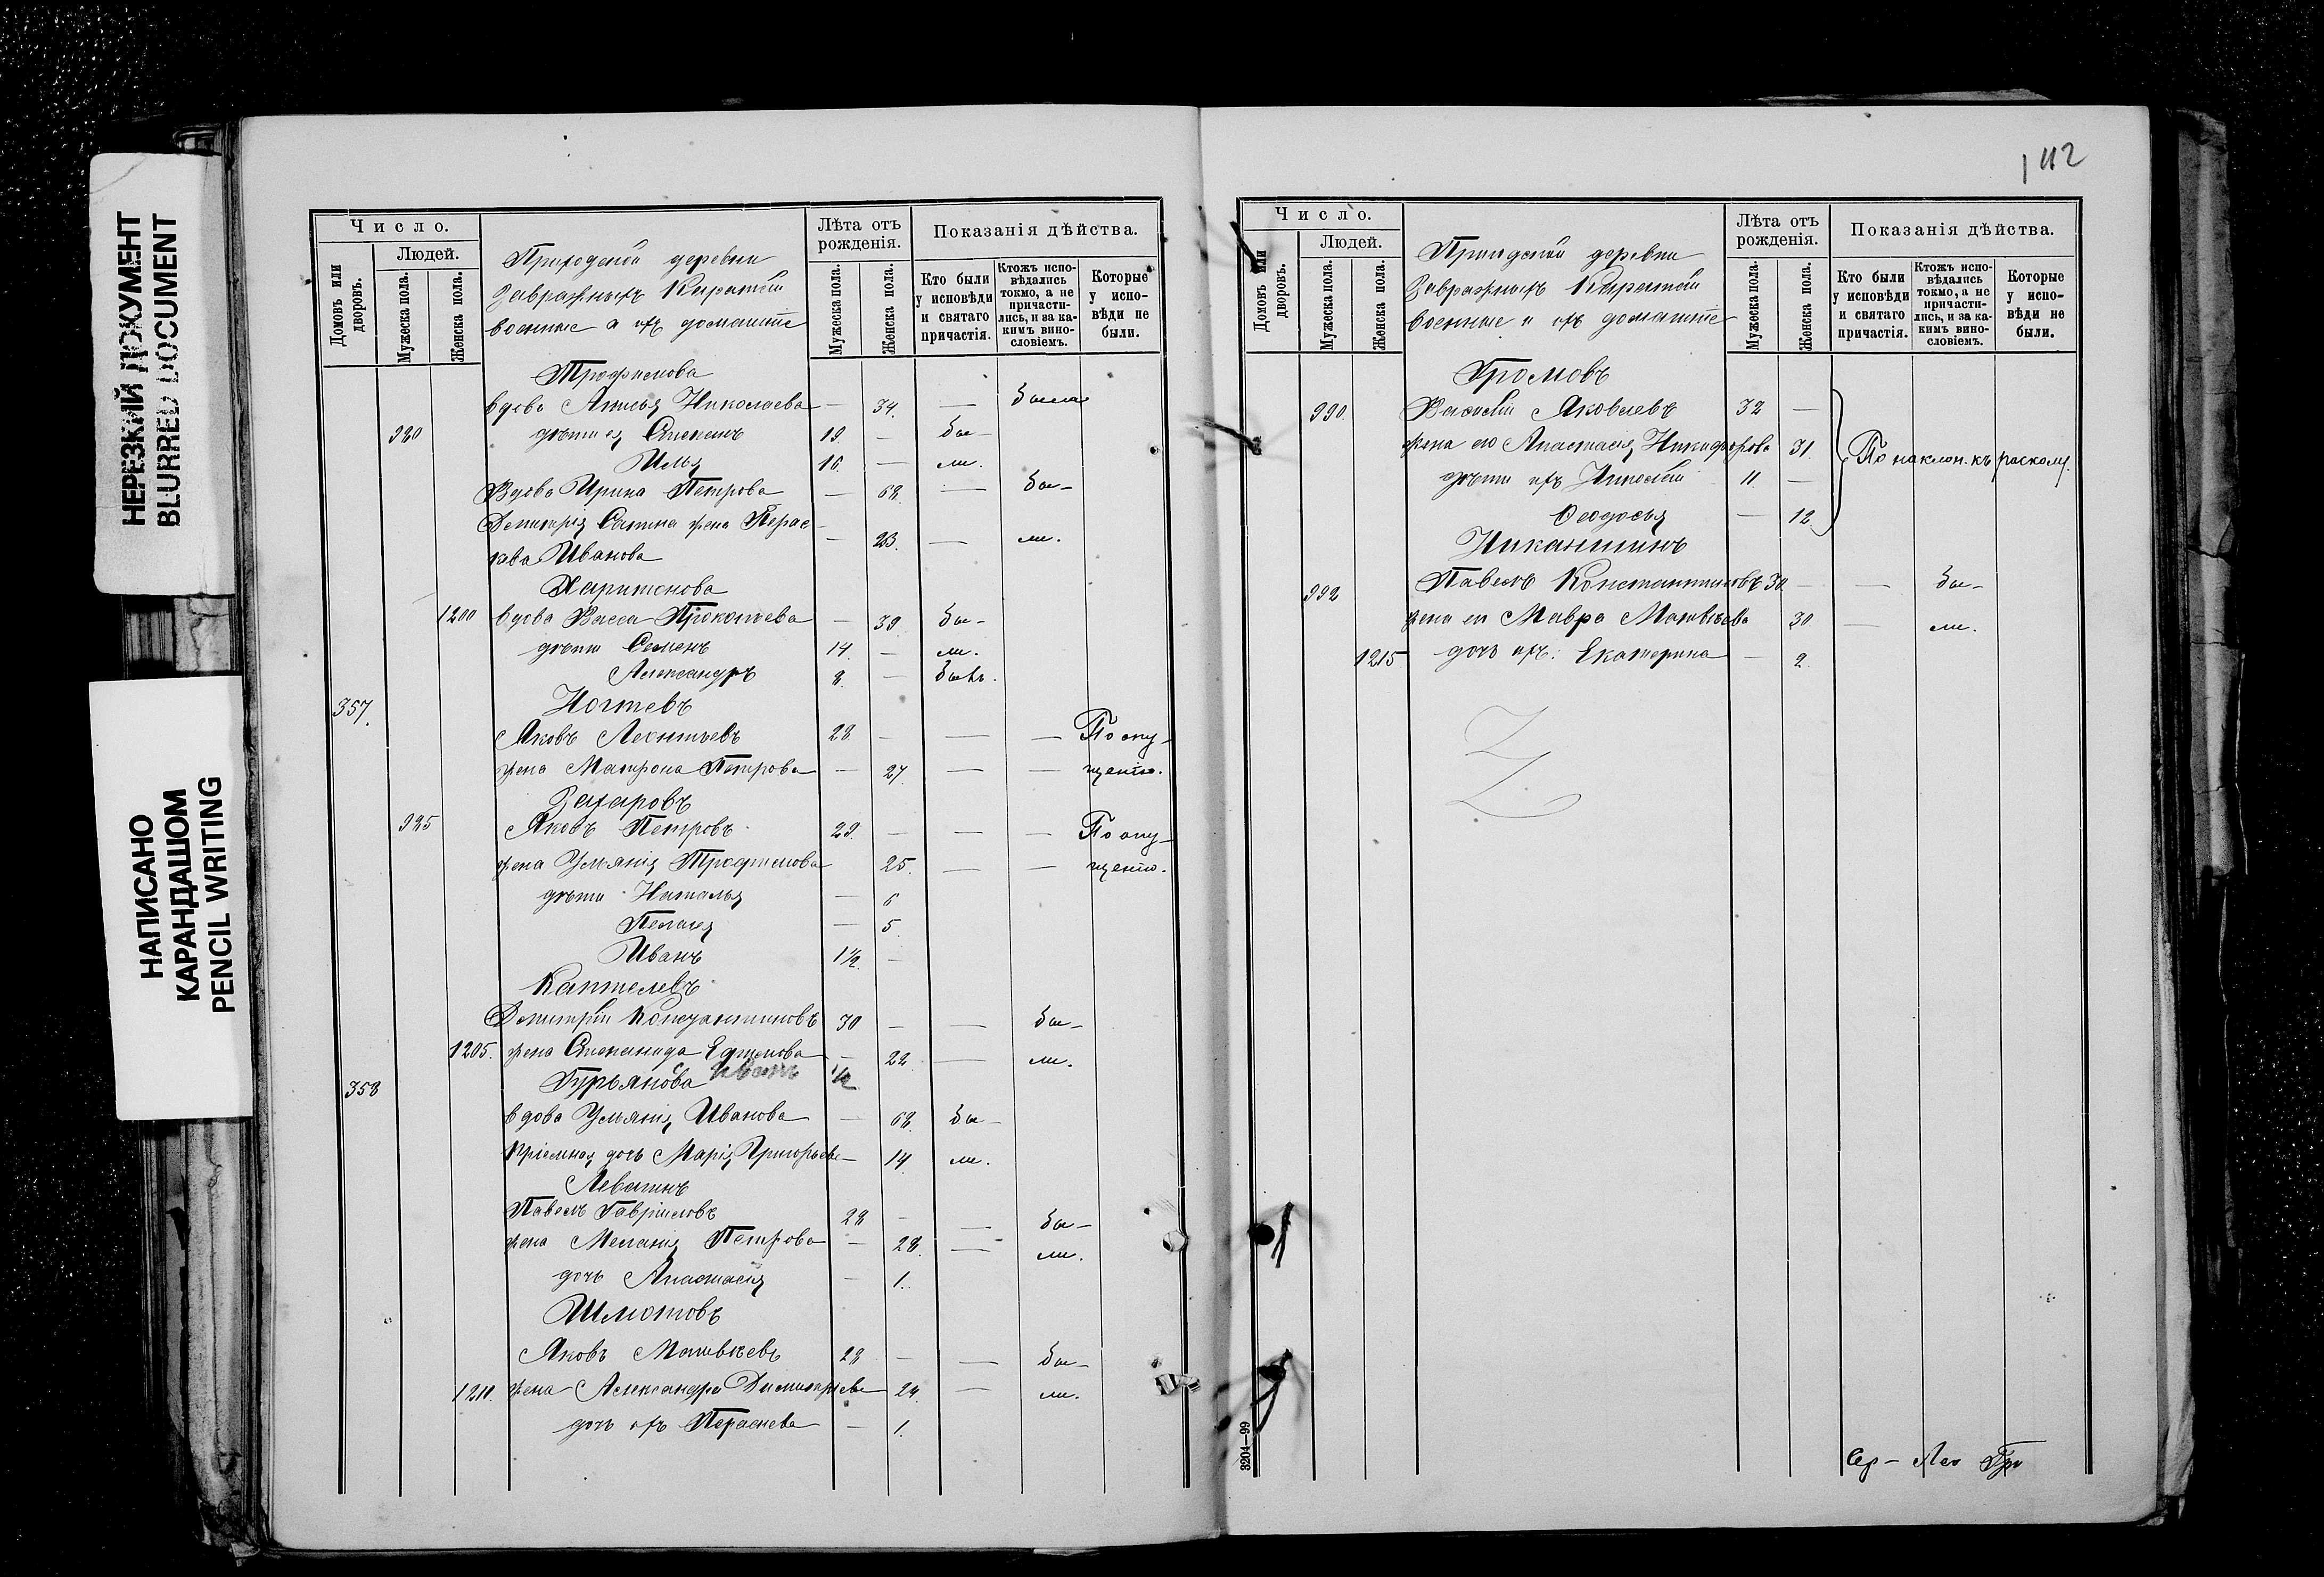 НЕРЕЗКИЙ ДОКУМЕНТ
BLURRED DOCUMENT
НАПИСАНО
КАРАНДАШОМ
PENCIL WRITING
Число.
Домовъ или дворовъ.
Людей.
Мужеска пола.
Женска пола.
Приходской деревни
Завражныхъ Каратай
военные и ихъ домашніе
Лѣта отъ рожденія.
Мужеска пола.
Женска пола.
Показанія дѣйства.
Кто были у исповѣди и святаго причастія.
Ктожъ испо-вѣдались токмо, а не причасти-лись, и за ка-кимъ вино-словіемъ.
Которые у испо-вѣди не были.
Трофимова
вдова Николаева — 34. — была
980 дѣти ея 19. — бы-
Илья 16. — ли.
Вдова Ирина Петрова — 68. — бы-
Димитрія жена Парас-
кева Иванова — 23. — ли.
Харитонова
1200 вдова Васса Прокопьева — 39 бы-
дѣти Семенъ 14. — ли.
Александръ 8. — былъ.
357. Ногтевъ
Яковъ Леонтьевъ 28. — — — По опу-
жена Матрона Петрова — 27 — — щенію.
Захаровъ
985 Яковъ Петровъ 29. — — — По опу-
жена Ульянія Трофимова 25. — — щенію.
дѣти Наталья — 6
Пелагея — 5.
Иванъ 1½. —
Каптелевъ
Димитрій Константиновъ 30 — — бы-
1205. жена Степанида Ефимова — 22 — ли.
358 Гурьянова Иванъ ½
вдова Ульянія Иванова — 68. бы-
пріемная дочь Марія Григорьева — 14 ли.
Левагинъ
Павелъ Гавріиловъ 28 — — бы-
жена Меланія Петрова — 28. — ли.
дочь Анастасія — 1.
Шмотовъ
Яковъ Матвѣевъ 28 — — бы-
1210. жена Александра Димитріева 24. — ли.
дочь ихъ Параскева — 1.
112
Число.
Домовъ или дворовъ.
Людей.
Мужеска пола.
Женска пола.
Приходской деревни
Завражныхъ Каратай
военные и ихъ домашніе
Лѣта отъ рожденія.
Мужеска пола.
Женска пола.
Показанія дѣйства.
Кто были у исповѣди и святаго причастія.
Ктожъ испо-вѣдались токмо, а не причасти-лись, и за ка-кимъ вино-словіемъ.
Которые у испо-вѣди не были.
Громовъ
990 Василій Яковлевъ 32 —
жена его Анастасія Никифорова 31.
По наклон. къ расколу.
дѣти ихъ Николай 11. —
Ѳеодосья — 12
Никаншинъ
992 Павелъ Константиновъ 30 — — бы-
жена его Мавра Матвѣева 30. — ли.
1215 дочь ихъ: Екатерина — 2.
3204—99